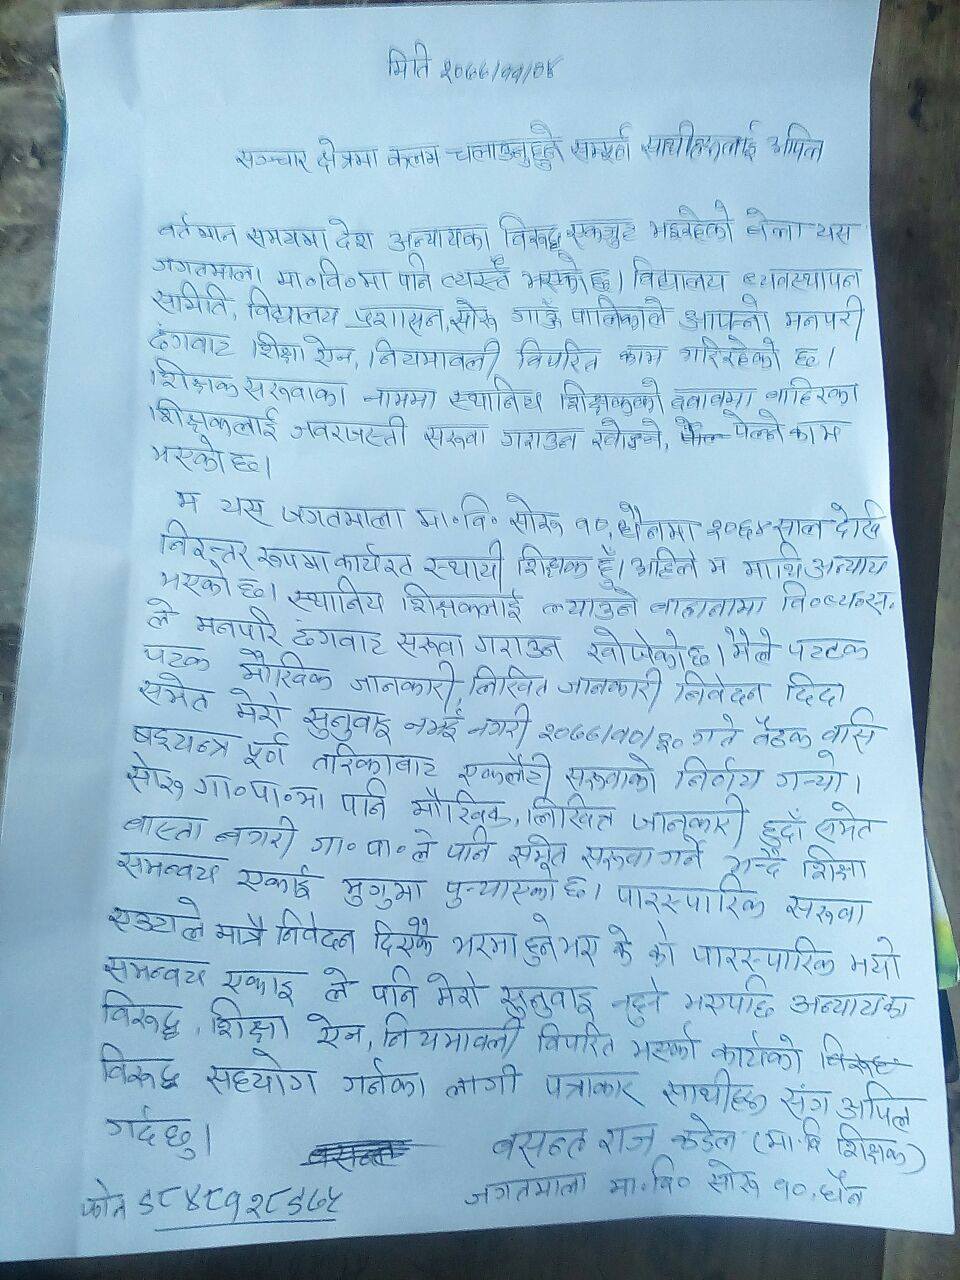 मिति २०७७/११/०४
सञ्चार क्षेत्रमा कलम चलाउनुहुने सम्पूर्ण साथीहरूलाई अपिल
वर्तमान समयमा देश अन्यायका विरूद्ध एकजुट भइरहेको बेला यस
जगतमाला मा॰वि॰मा पनि त्यस्तै भएको छ। विद्यालय व्यवस्थापन
समिति, विद्यालय प्रशासन, सोरू गाउँ पालिकाले आफ्नो मनपरी
ढंगवाट शिक्षा ऐन, नियमावली विपरित काम गरिरहेको छ।
शिक्षक सरूवाका नाममा स्थानिय शिक्षकको दवावमा बाहिरका
शिक्षकलाई जवरजस्ती सरूवा गराउन खोज्ने, पेल्ने काम
भएको छ।
म यस जगतमाला मा॰वि॰ सोरू १०, धैनमा २०६४ साल देखि
निरन्तर रूपमा कार्यरत स्थायी शिक्षक हुँ। अहिले म माथि अन्याय
भएको छ। स्थानिय शिक्षकलाई ल्याउने बाहानामा वि॰व्य॰स.
ले मनपरि ढंगवाट सरूवा गराउन खोजेको छ। मैले पटक
पटक मौखिक जानकारी, लिखित जानकारी निवेदन दिदा
समेत मेरो सुनुवाइ नभई नगरी २०७७/१०/३० गते बैठक वसि
षड्यन्त्र पूर्ण तरिकावाट एकलौटी सरूवाको निर्णय गर्‍यो।
सोरू गा॰पा॰मा पनि मौखिक, लिखित जानकारी हुदाँ समेत
वास्ता नगरी गा॰ पा॰ ले पनि सरूवा गर्ने भन्दै शिक्षा
समन्वय एकाई मुगुमा पुर्‍याएको छ। पारस्पारिक सरूवा
एउटाले मात्रै निवेदन दिएकै भरमा हुने भए के को पारस्पारिक भयो
समन्वय एकाइ ले पनि मेरो सुनुवाइ नहुने भएपछि अन्यायका
विरूद्ध, शिक्षा ऐन, नियमावली विपरित भएको कार्यको विरूद्ध
विरूद्ध सहयोग गर्नका लागी पत्राकार साथीहरू संग अपिल
गर्दछु।
वसन्त
वसन्त राज कडेल (मा.वि शिक्षक)
जगतमाला मा॰वि॰ सोरू १०, धैन
फोन ९८४८१२८९७५